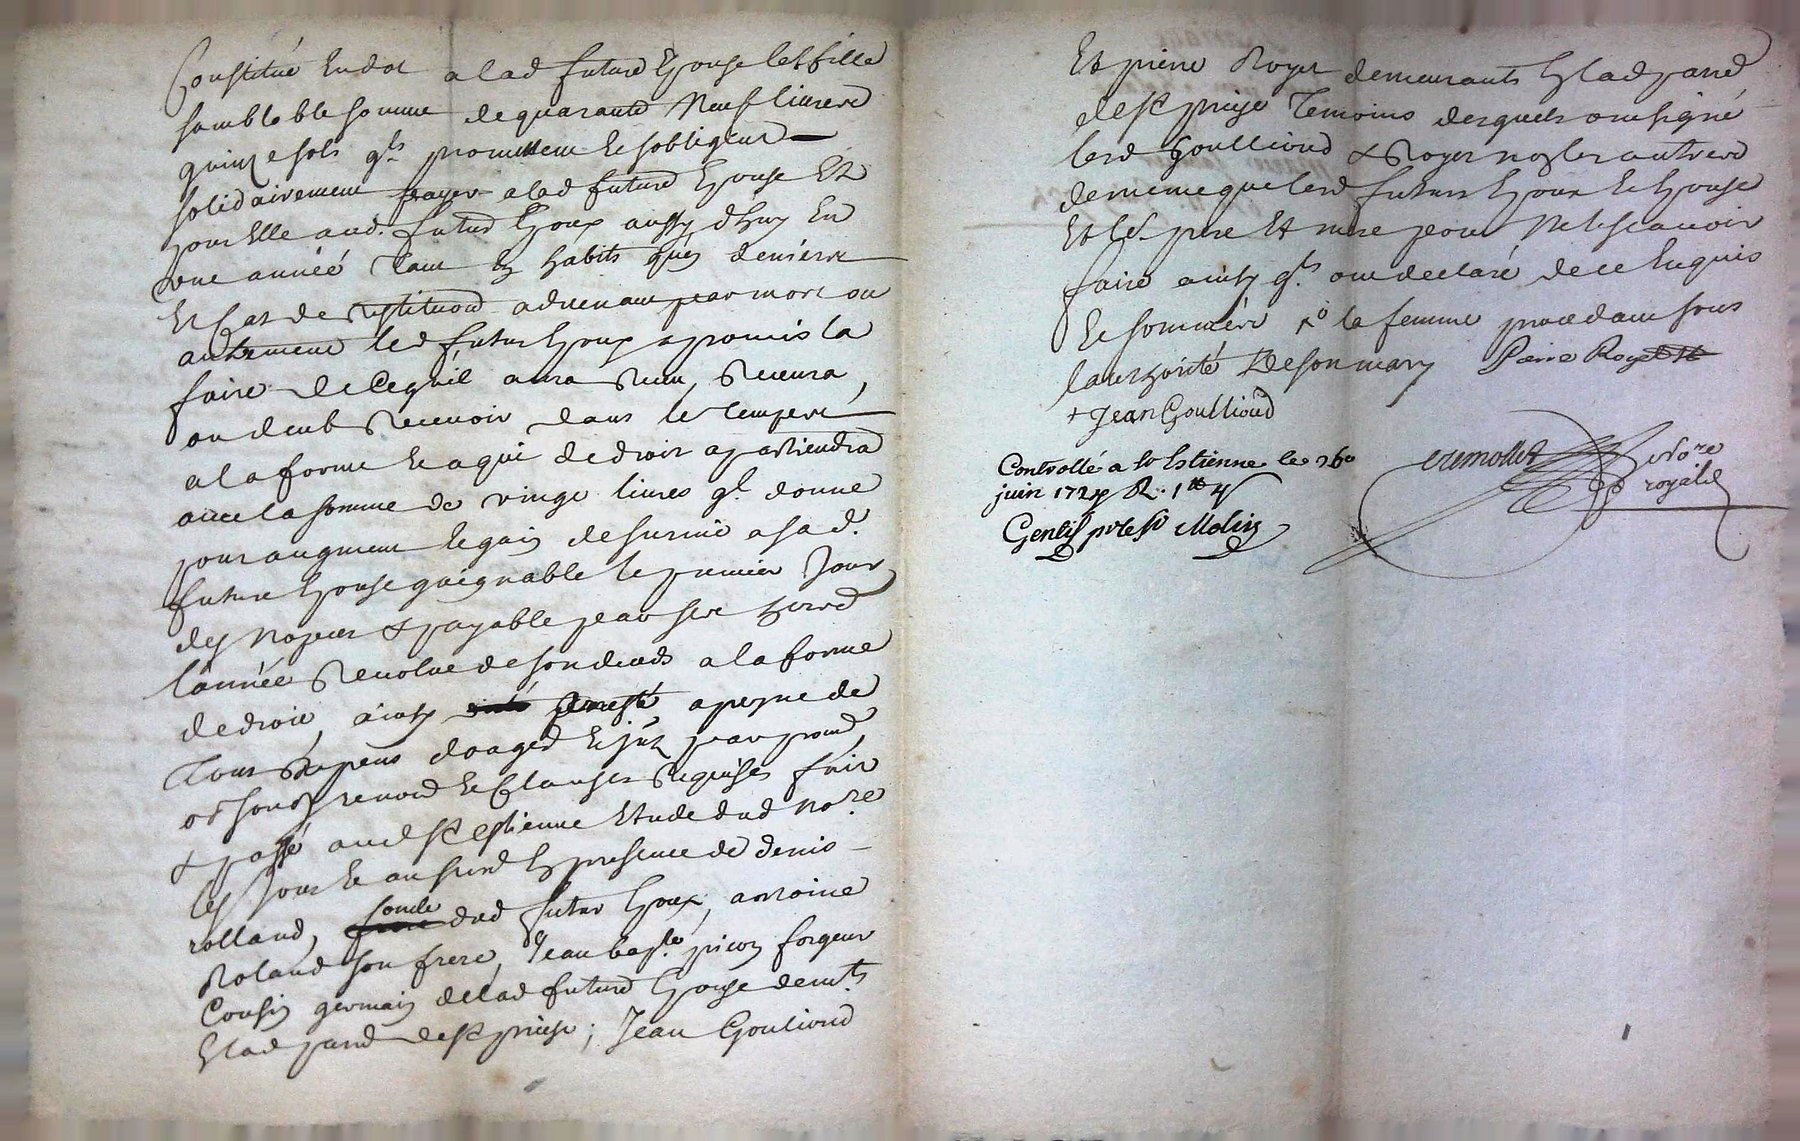 Constitué en dot a lad future Epouse let fille
semblable somme de quarante Neuf livres
quinze sols qls promettent et sobligent
solidairement payer a lad future Epouse Et
pour Elle aud. futur Epoux aussy dhuy En
une année Tant En habits quen deniers
Et Cas de restitution advenant par mort ou
autrement led futur Epoux a promis la
faire de Ce quil aura Receu, Recevra,
ou deub Recevoir dans le temps et
a la forme et a qui de droit apartiendra
avec la somme de vingt livres ql donne
pour augment et gain de survie a sad.
future Epouse gaignable le premier Jour
des Nopces & payable par ses hers
l'année Revolue de son deceds a la forme
de droit, ainsy a peyne de
Tous Depens domages et par promes
et Clauses Requises fait
& passé aud St Estienne Etude dud Nore
les Jour et an susd En presence de denis
rolland, oncle dud futur Epoux, antoine
Roland son frere, Jean bapte. picon forgeur
Cousin germain de lad future Epouse demts
En lad parr de St priest; Jean Goulioud
Et pierre Royet demeurants En lad parr
de St priest Temoins desquels ont signé
lesd Goullioud & Royet non les autres
de meme que lesd futurs Epoux et Epouse
Et lesd pere Et mere pour Ne le scavoir
faire ainsy qls ont declaré de ce Enquis
Et sommés la femme procedant sous
lauthorité De son mary Pierre Royet
+ Jean Goullioud
Controllé a St Estienne le 26e
juin 172 R: 1tt 4s
Gentil pr le Sr Molin
cremollet nore
royal